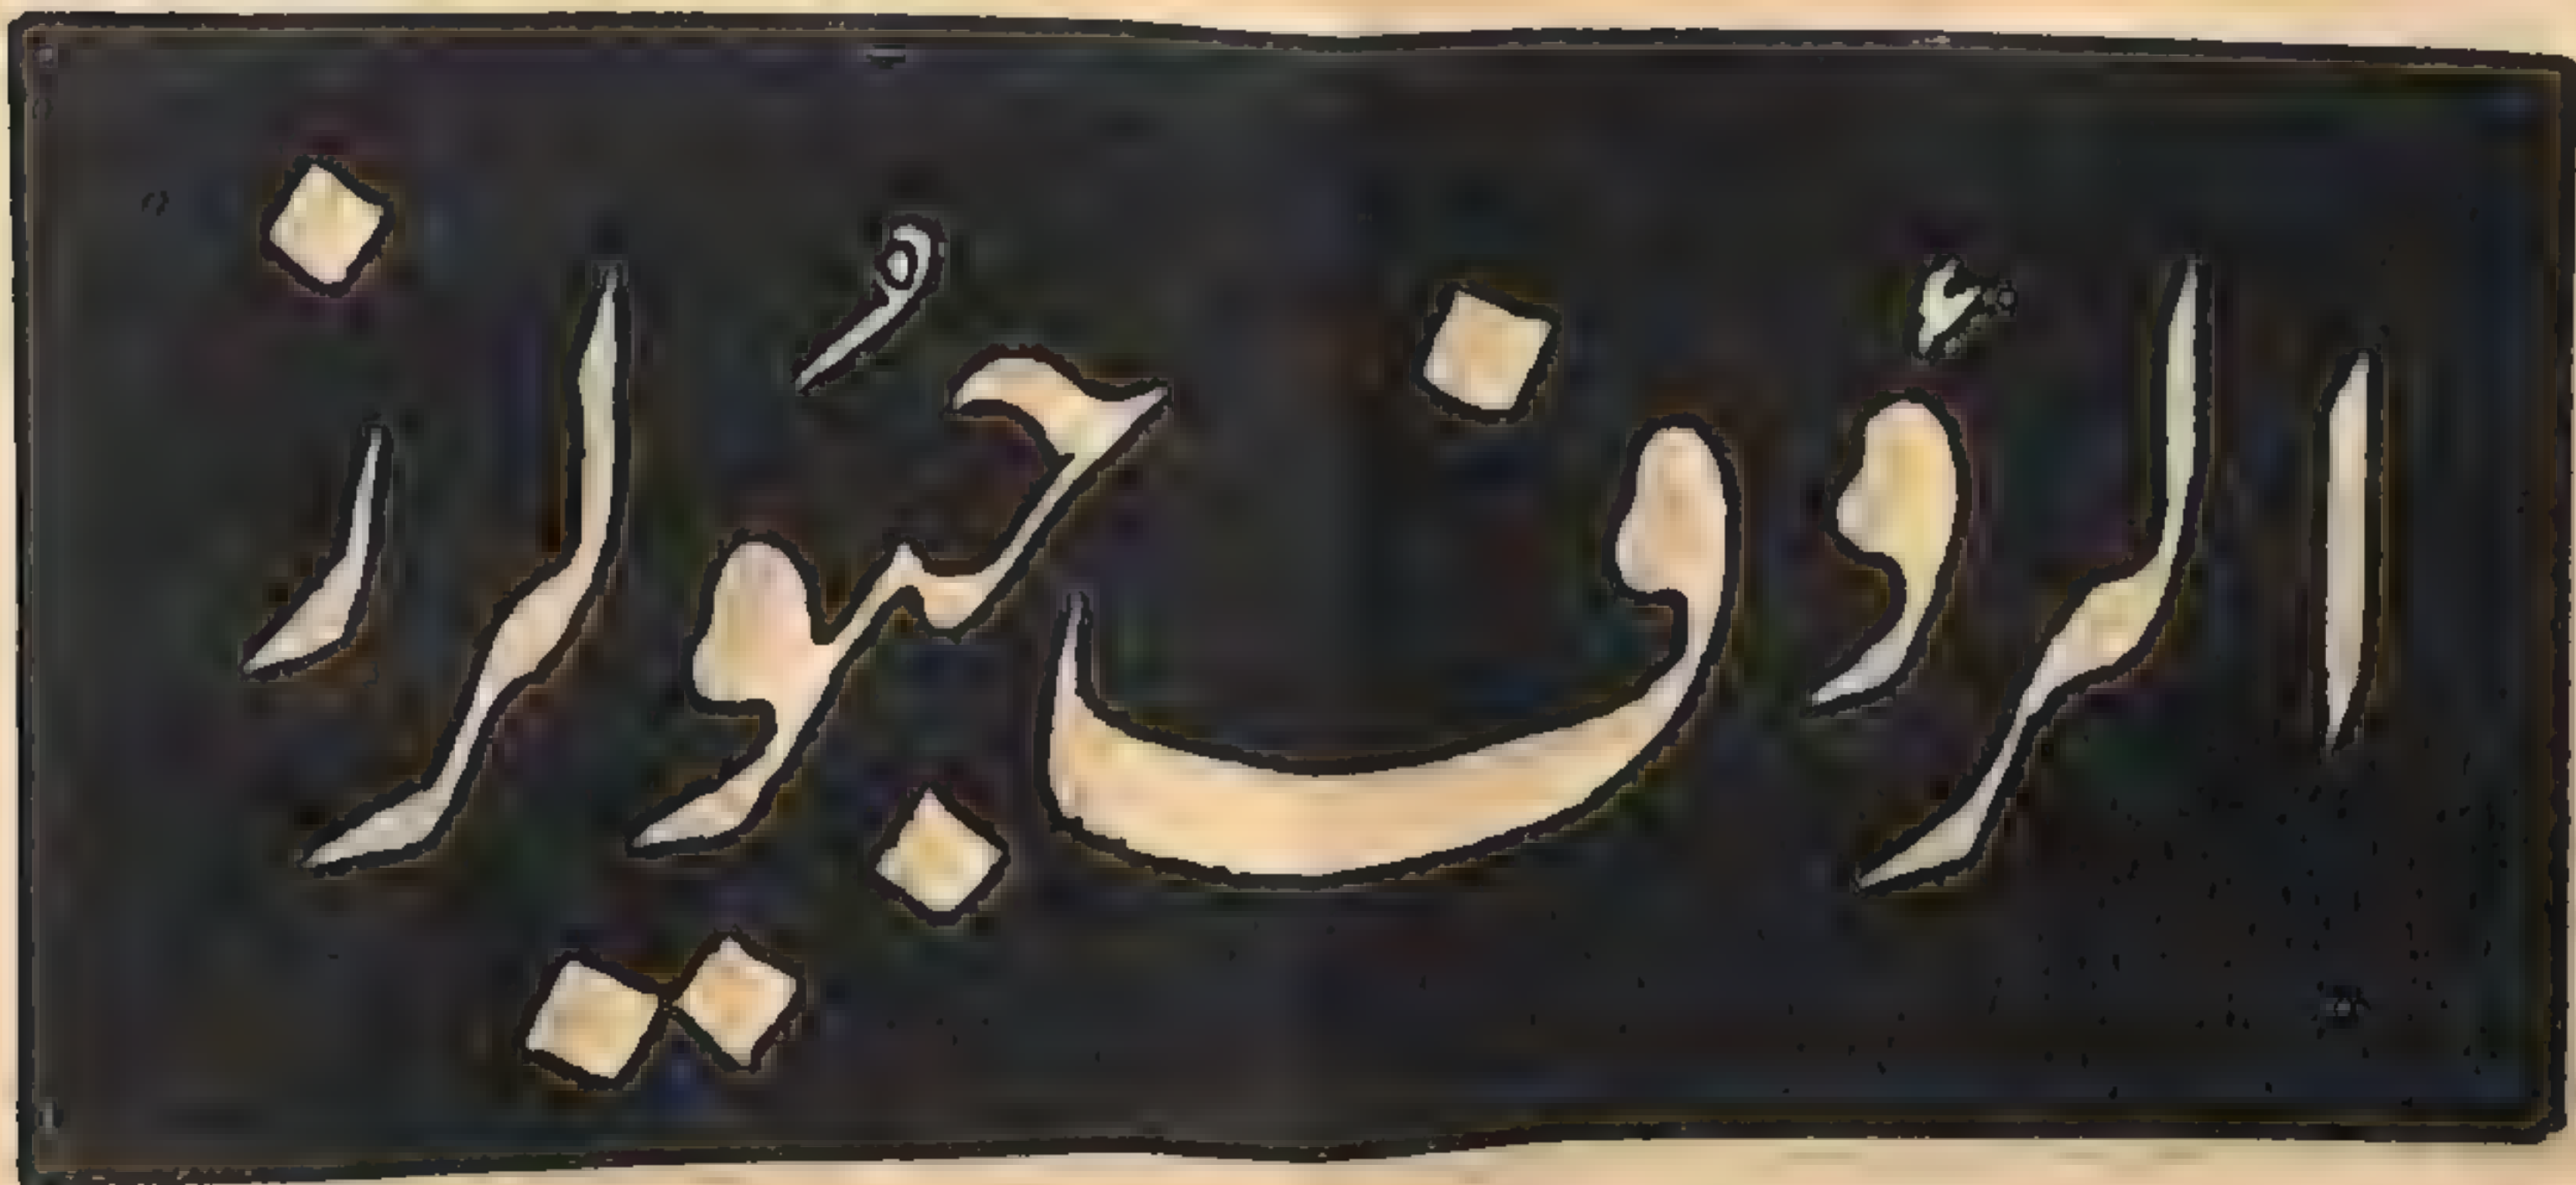 الرؤف جیُولرز